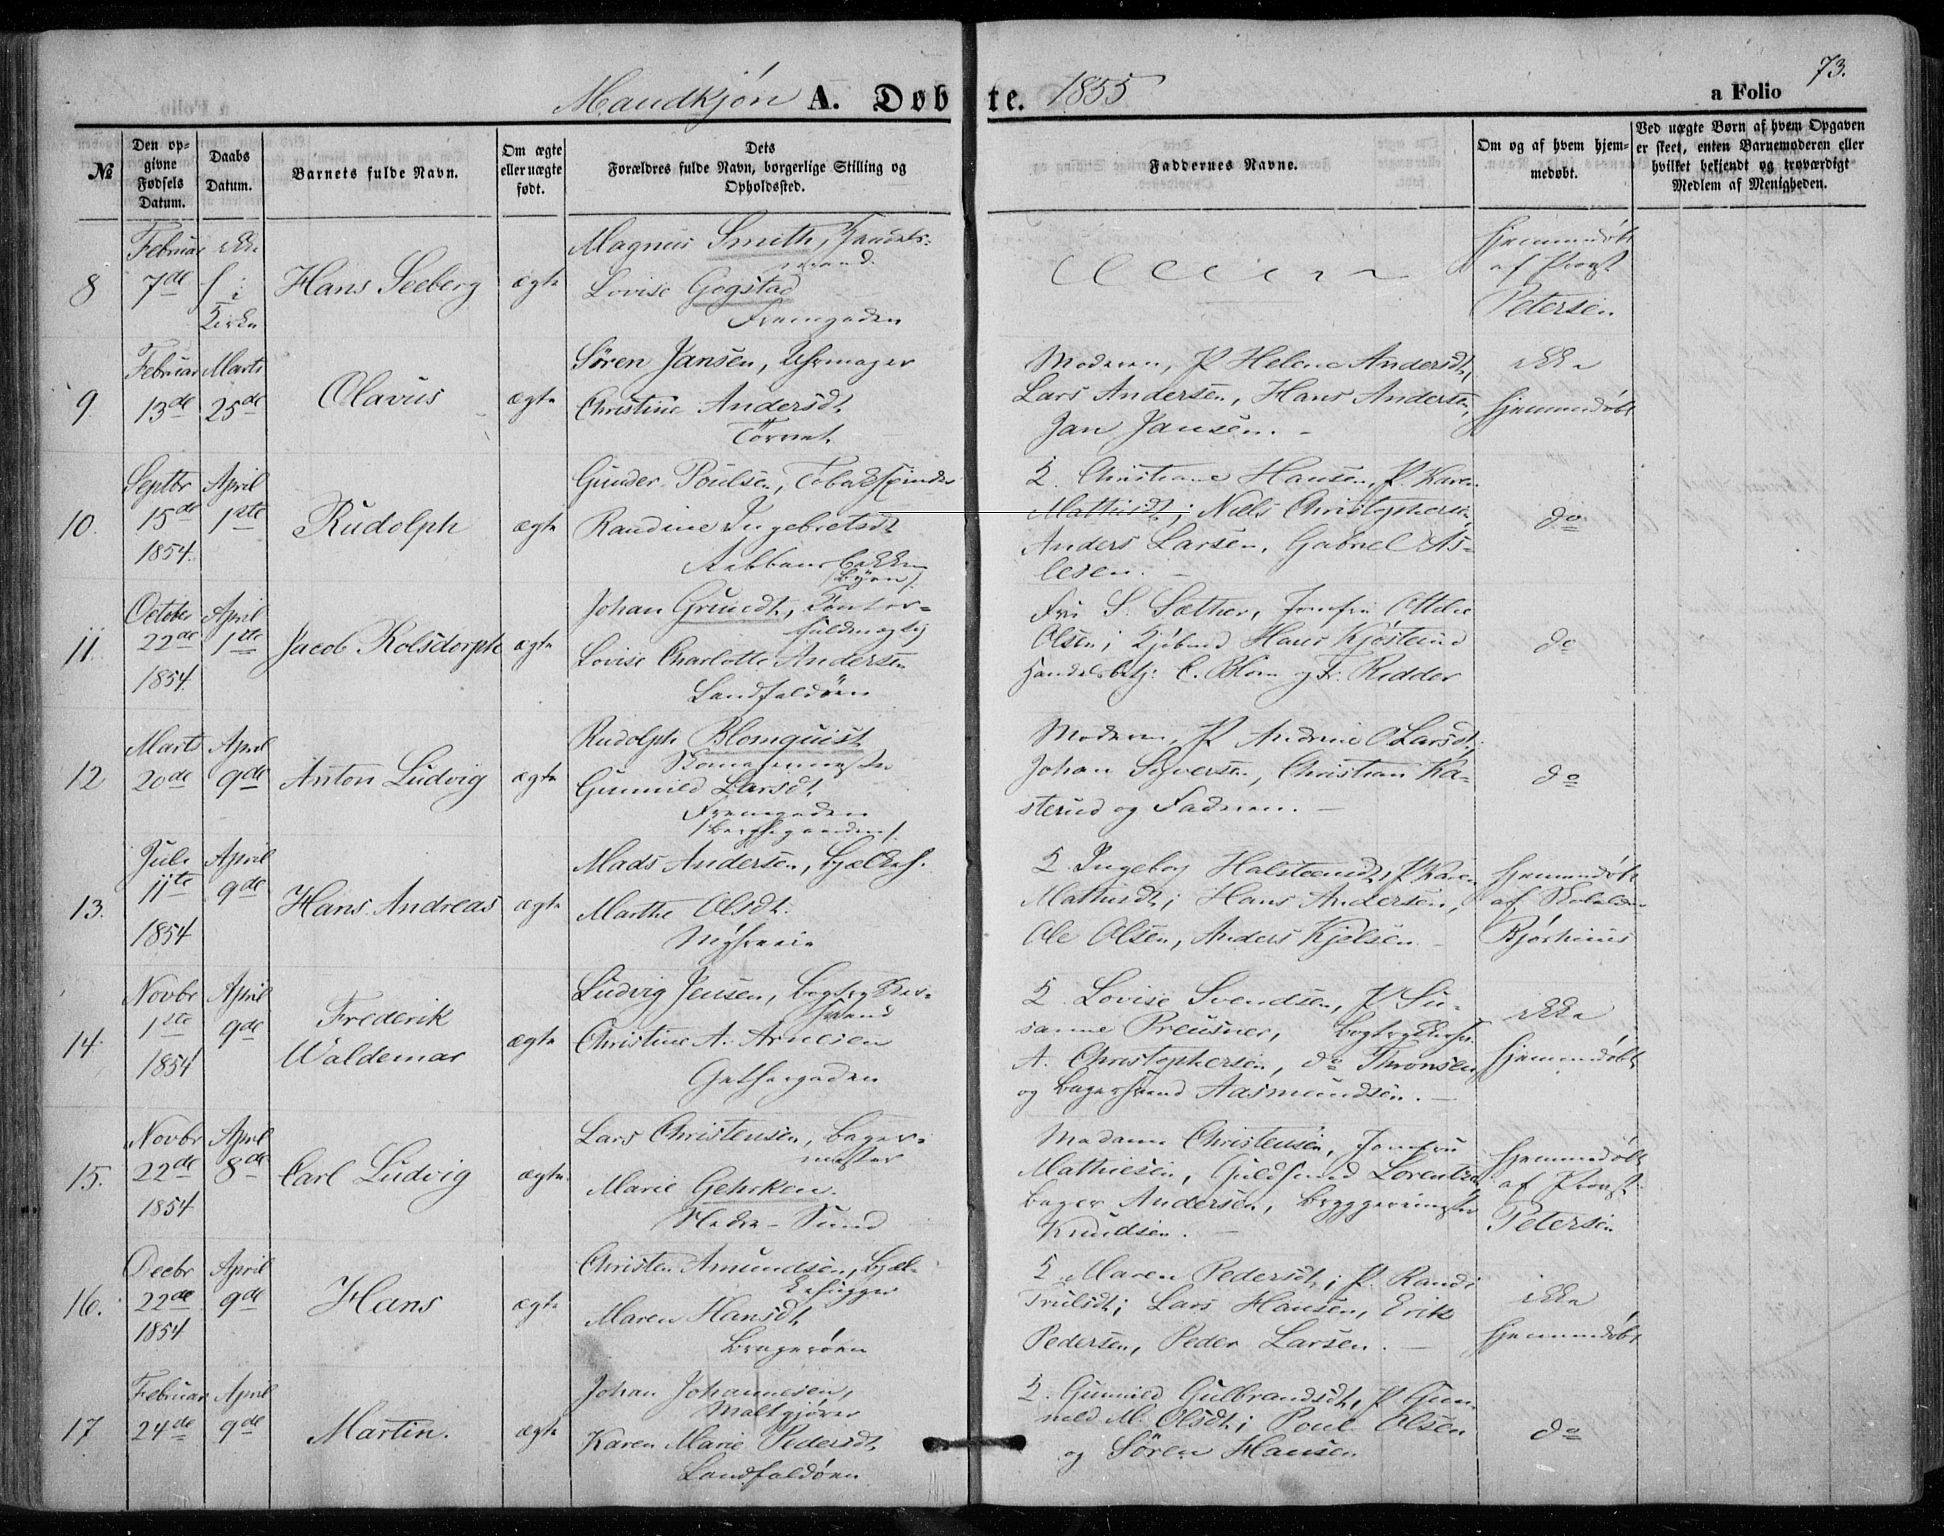 73.
Mandkjøn A. Døbte. 1855
a Folio
№
Den opgivne Fødsels Datum.
Daabs Datum.
Barnets fulde Navn.
Om ægte eller uægte født.
Dets Forældres fulde Navn, borgerlige Stilling og Opholdssted.
Faddernes Navne.
Om og af hvem hjemmedøbt.
Ved uægte Børn af hvem Opgaven er skeet, enten Barnemoderen eller hvilket bekjendt og troværdigt Medlem af Menigheden.
8
Februar
7de
ikke
i
Kirke
Hans Seeberg
ægte
Magnus Smith, Handels-
mand.
Lovise Gogstad
Fremgaden
hjemmedøbt
af Provst
Petersen
9.
Februar
13de
Marts
25de
Olavus
ægte
Søren Jansen, Uhrmager
Christine Andersdt.
Torvet
Moderen, P Helene Andersdt,
Lars Andersen, Hans Andersen,
Jan Jansen.
ikke
hjemmedøbt
10.
Septbr
15de
1854.
April
1ste
Rudolph
ægte
Gunder Poulsen, Tobakspinder
Randine Ingebretsdt
(Byen)
K. Christiane Hansen, P. Karen
Mathisdt; Niels Christophersen,
Anders Larsen, Gabriel As-
lesen.
do
11.
October
22de
1854.
April
1ste
Jacob Kolsdorph
ægte
Johan Grundt, Contor-
fuldmægtig
Lovise Charlotte Andersen
Landfaldøen
Fru S. Sæther, Jomfru Ottilie
Olsen; Kjøbmd Hans Kjøsterud
Handelsbetj. C. Blom og Fr. Ridder
do
12
Marts
20de
April
9de
Anton Ludvig
ægte
Rudolph Blomquist
Skomagermester
Gunnild Larsdt.
Fremgaden
Moderen, P Andrine O Larsdt,
Johan Syversen, Christian Kø-
sterud og Faderen.
do
13.
Juli
11te
1854
April
9de
Hans Andreas
ægte
Mads Andersen, bjelkeh.
Marthe Olsdt.
K Ingeborg Halsteensdt, P Karen
Mathisdt; Hans Andersen,
Ole Olsen, Anders Kjølsen
hjemmedøbt
af Skolelær
Bjørhuus
14.
Novbr
1ste
1854
April
9de
Frederik
Waldemar
ægte
Ludvig Jensen, bogtrykker-
svend
Christine A. Arnesen
Gethergaden
K. Lovise Svendsen, P Su-
sanne Preusner, bogtrykkersv.
A. Christophersen, do Thronsen
og bagersvend Aasmundsen.
ikke
hjemmedøbt
15.
Novbr
22de
1854
April
8de
Carl Ludvig
ægte.
Lars Christensen, bager-
mester
Marie Gehrken.
Nedre-Sund
Madame Christensen, Jomfru
Mathiesen, Guldsmed Lorentzen
bager Andersen, bryggermester
Knudsen.
hjemmedøbt
af Provst
Petersen
16.
Decbr
22de
1854
April
9de
Hans
ægte
Christen Amundsen, bjel-
kehugger
Maren Hansdt,
Bragerøen
K Maren Pedersdt; P. Randi
Trulsdt; Lars Hansen, Erik
Pedersen, Peder Larsen.
ikke
hjemmedøbt
17
Februar
24de
April
9de
Martin.
ægte
Johan Johannesen,
Maltgjører
Karen Marie Pedersdt,
Landfaldøen
K. Gunnild Gulbrandsdt, P Gun-
nild M. Olsdt; Poul Olsen
og Søren Hansen
do